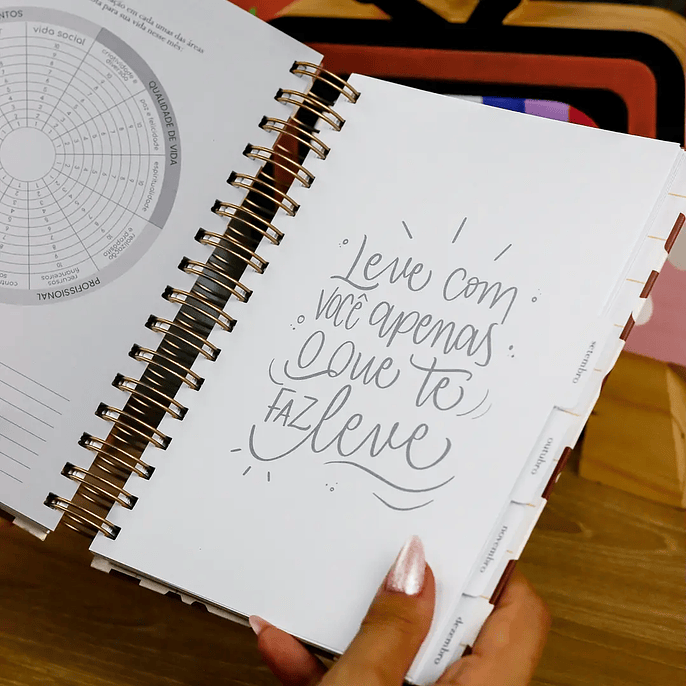 ação em cada umas das áreas
ta para sua vida nesse mês:
vida social
criatividade e
diversão
QUALIDADE DE VIDA
paz e felicidade
espiritualidade
realização
e propósito
recursos
financeiros
PROFISSIONAL
Leve com
você apenas
o que te
FAZ leve
setembro
outubro
novembro
dezembro